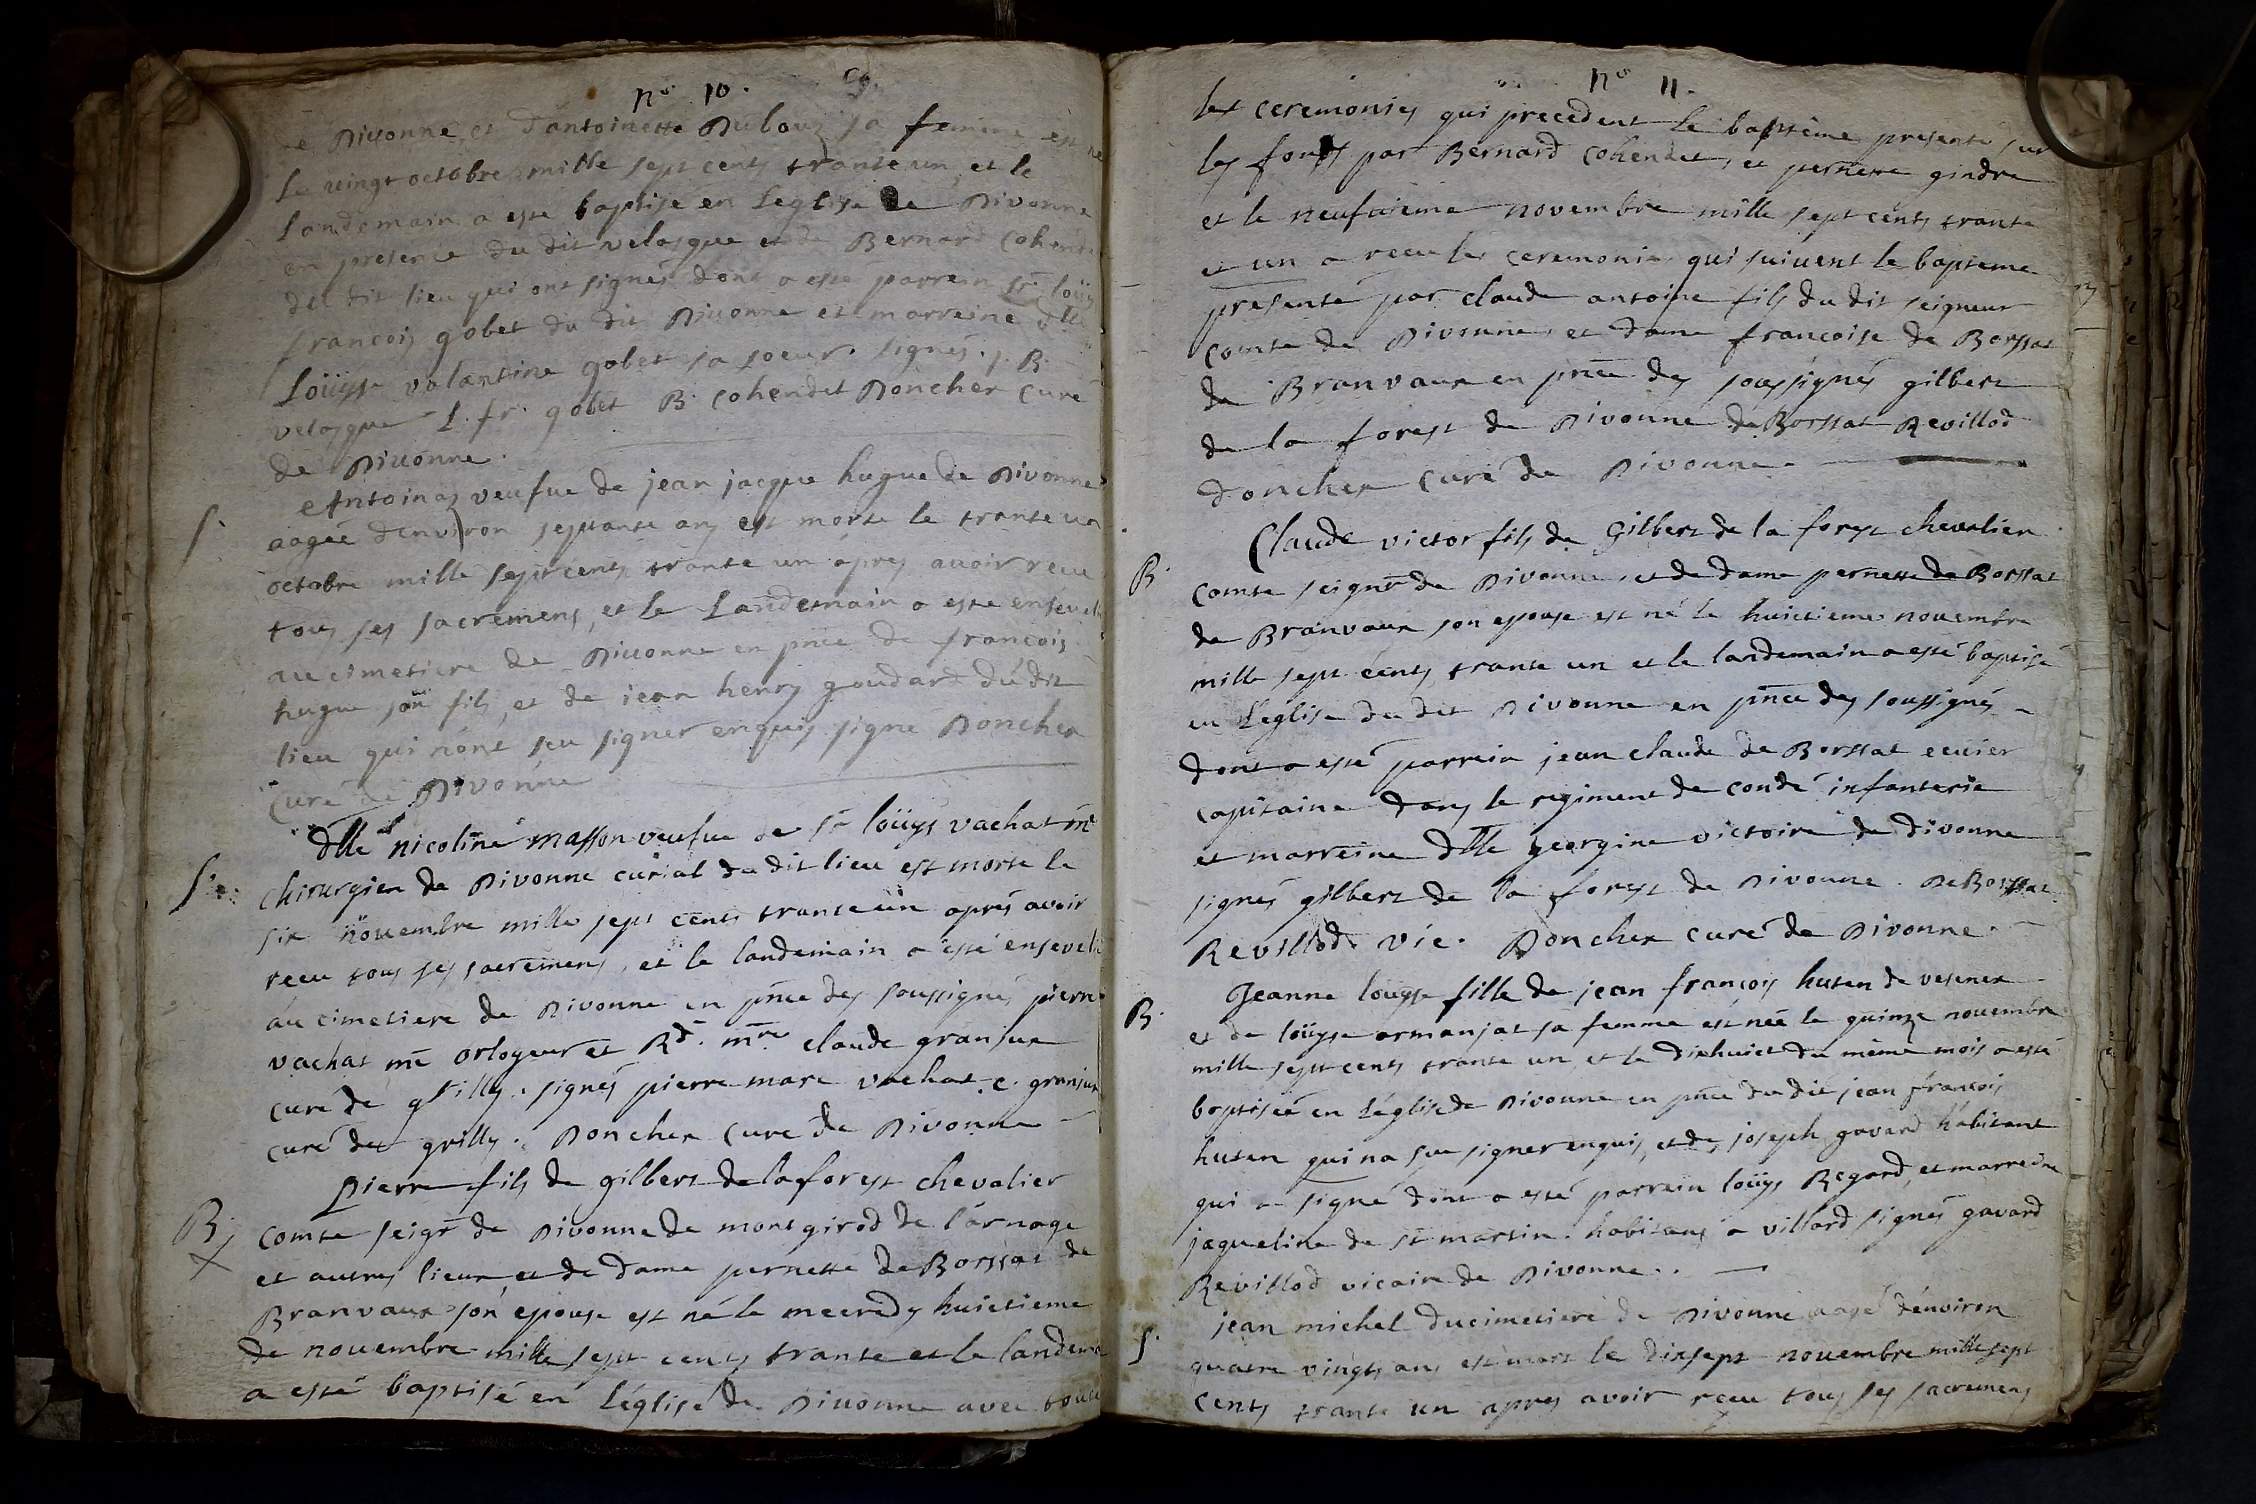 n° 10.
de Divonne, et d'antoinette Dubouz sa femme est né
Le vingt octobre mille sept cents trante un, et le
Landemain a esté baptisé en Leglise de Divonne
en presence du dit velasque et de Bernard Cohendet
du dit lieu qui ont signés dont a esté parrein sr loüys
francois gobet du dit Divonne et marreine dlle
Loüyse valantine gobet sa soeur. signés. j. B.
velasque L. fr. gobet B. Cohendet Doncher Curé
de Divonne.
S. Antoinaz veufue de jean jacque hugue de Divonne
aagée d'environ septante ans est morte le trante un
octobre mille sept cents trante un apres auoir receu
tous ses sacremens, et le Landemain a esté enseveli
au cimetiere de Divonne en pnce de francois
hugue son fils, et de jean henry goudard du dit
lieu qui n'ont sçu signer enquis signé Doncher
Curé de Divonne
dlle nicoline masson veufue de sr loüys vachat me
S. chirurgien de Divonne curial du dit lieu est morte le
six nouembre mille sept cents trante un aprés avoir
receu tous ses sacremens, et le landemain a esté enseveli
au cimetiere de Divonne en pnce des soussignés pierre
vachat me orlogeur et Rd. mre claude granjux
curé de grilly. signés pierre marc vachat. c. granjux
curé de grilly. Doncher Curé de Divonne
Pierre fils de gilbert de la forest chevalier
B. comte seigr de Divonne de mont girod de l'arnage
X et autres lieux et de dame pernette de Borssat de
Branvaux son epouse est né le mecredy huictieme
de nouembre mille sept cents trante et le landemain
a esté baptisé en l'église de Divonne avec toute
n° 11.
les ceremonies qui precedent le baptême presenté sur
les fonts par Bernard Cohendet, et pernette gindre
et le neufuieme novembre mille sept cents trante
et un a receu les ceremonies qui suivent le bapteme
presenté par claude antoine fils du dit seigneur
comte de Divonne et dame francoise de Borssat
de Branvaux en pnce des soussignés gilbert
de la forest de Divonne de Borssat Revillod
doncher curé de Divonne.
Claude victor fils de Gilbert de la forest chevalier
B. comte seignr de Divonne, et de dame pernette de Borssat
de Branvaux son epouse est né le huictieme nouembre
mille sept cents trante un et le landemain a esté baptisé
en l'église du dit Divonne en pnce des soussignés
dont a esté parrein jean claude de Borssat ecuier
capitaine dans le regiment de condé infanterie
et marreine dlle georgine victoire de divonne
signés gilbert de la forest de Divonne. De Borssat.
Revillod vic. Doncher curé de Divonne.
Jeanne louyse fille de jean françois huten de vesenex
B. et de loüyse armanjat sa femme est née le quinze nouembre
mille sept cents trante un, et le dixhuict du même mois a esté
baptisée en l'église de Divonne en pnce du dit jean françois
huten qui na sçu signer enquis, et de joseph gavard habitant
qui a signé dont a esté parrein loüys Regard, et marreine
jaqueline de st martin habitans a villard signés gavard
Revillod vicaire de Divonne..
jean michel du cimetiere de Divonne aagé d'environ
S. quatre vingts ans est mort le dixsept nouembre mille sept
cents trante un apres avoir receu tous ses sacremens